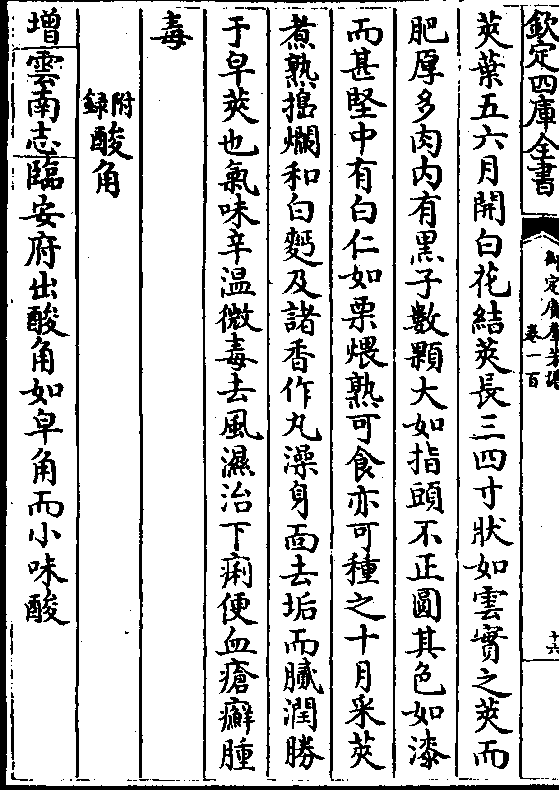 欽定四庫全書
卷一百
十六
莢葉五六月開白花結莢長三四寸狀如雲實之莢而
肥厚多肉内有黑子數顆大如指頭不正圓其色如漆
而甚堅中有白仁如栗煨熟可食亦可種之十月采莢
煮熟搗爛和白麪及諸香作丸澡身面去垢而膩潤勝
于皁莢也氣味辛温微毒去風濕治下痢便血瘡癬腫
毒
附録酸角
增雲南志臨安府出酸角如皁角而小味酸